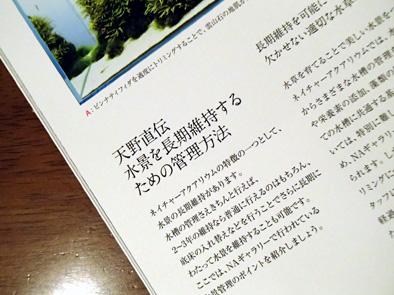 A:ピンナティフィダを適度にトリミングすることで、雲山石の凹凸が
天野直伝
水景を長期維持する
ための管理方法
ネイチャーアクアリウムの特徴の一つとして、
水景の長期維持があります。
水槽の管理さえきちんと行えば、
2~3年の維持なら普通に行えるのはもちろん、
底床の入れ替えなどを行うことでさらに長期に
わたって水景を維持することも可能です。
ここでは、NAギャラリーで行われている
水景管理のポイントを紹介しましょう。
長期維持を可能に
欠かせない適切な水草
水草を育てることで美しい水景を
ネイチャーアクアリウムでは、水
からさまざまな水槽の管理
や栄養素の添加、藻類の
ての水槽に共通する基
いては、特別に難し
め、NAギャラリ
られます。し
リミングに
タッフ
経過